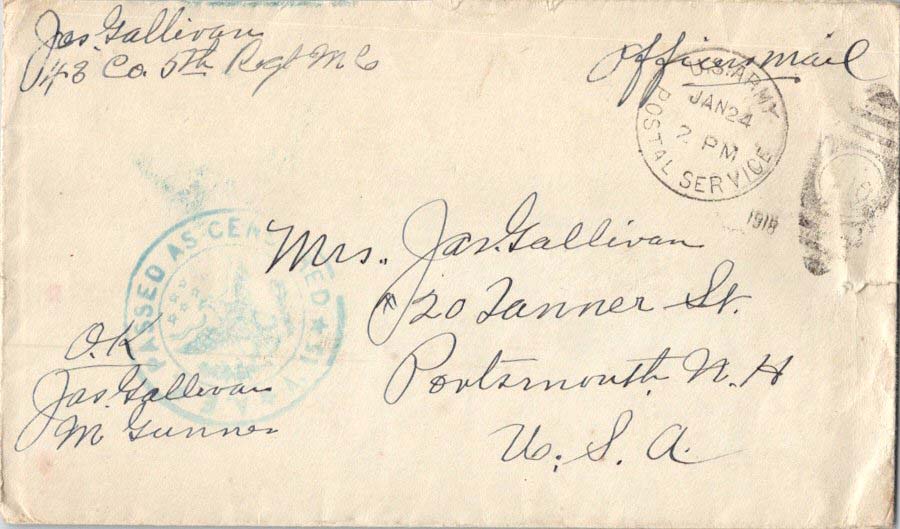 Jas. Gallivan
43 Co. 5th Regt M C
Officers mail
U.S. ARMY
JAN 24
2 PM
POSTAL SERVICE
1918
PASSED AS CENSORED
Mrs. Jas. Gallivan
#20 Tanner St.
Portsmouth, N. H
U. S. A.
O.K
Jas. Gallivan
M Gunner